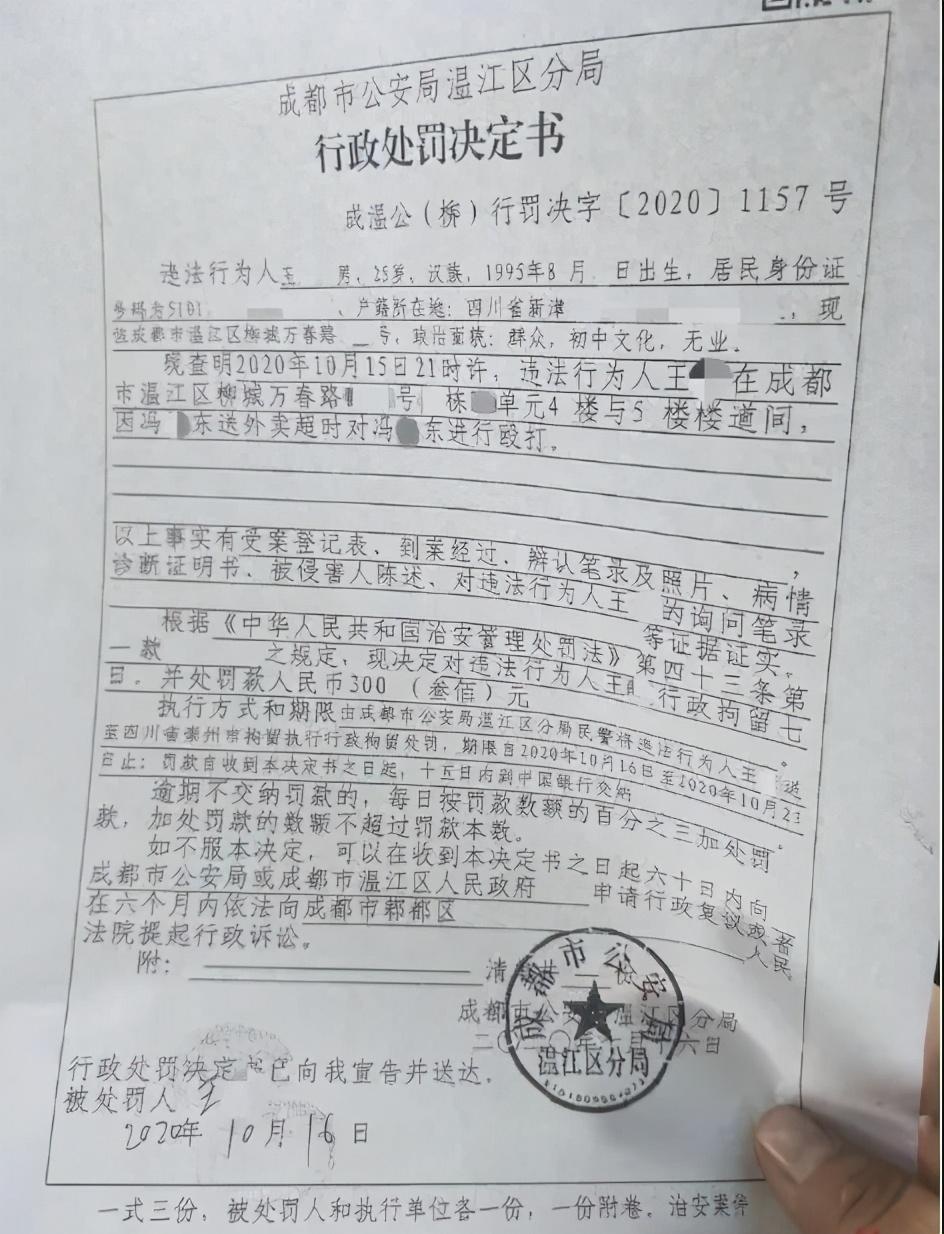 成都市公安局温江区分局
行政处罚决定书
成温公（柳）行罚决字〔2020〕1157 号
违法行为人王 男，25岁，汉族，1995年8月 日出生，居民身份证
号码为5101 、户籍所在地：四川省新津 ，现
住成都市温江区柳城万春路 号，政治面貌：群众，初中文化，无业。
现查明2020年10月15日21时许，违法行为人王 在成都
市温江区柳城万春路 号 栋 单元4 楼与5 楼楼道间，
因冯 东送外卖超时对冯 东进行殴打。
，
以上事实有受案登记表、到案经过、辨认笔录及照片、病情
诊断证明书、被侵害人陈述、对违法行为人王 的询问笔录
等证据证实。
根据《中华人民共和国治安管理处罚法》第四十三条第
一款 之规定，现决定对违法行为人王 行政拘留七
日，并处罚款人民币300 （叁佰）元 。
执行方式和期限由成都市公安局温江区分局民警将违法行为人王 送
至四川省崇州市拘留执行行政拘留处罚，期限自2020年10月16日至2020年10月23
日止；罚款自收到本决定书之日起，十五日内到中国银行交纳
逾期不交纳罚款的，每日按罚款数额的百分之三加处罚
款，加处罚款的数额不超过罚款本数。
如不服本决定，可以在收到本决定书之日起六十日内向
成都市公安局或成都市温江区人民政府 申请行政复议或者
在六个月内依法向成都市郫都区 人民
法院提起行政诉讼。
附： 清 共
成都市公安 温江区分局
二〇二〇年 月 六日
成都市公安局
温江区分局
行政处罚决定 已向我宣告并送达。
被处罚人 王
2020年 10月 16 日
一式三份，被处罚人和执行单位各一份，一份附卷。治安案件